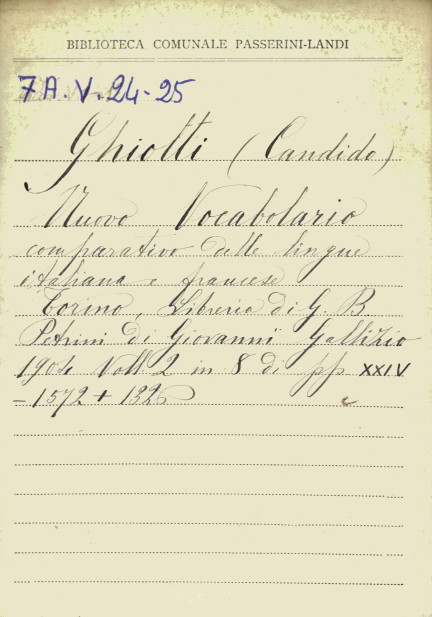 BIBLIOTECA COMUNALE PASSERINI-LANDI
7A. V. 24-25
Ghiotti (Candido)
Nuovo Vocabolario
comparativo delle lingue
italiana e francese
Torino, Libreria di G. B.
Petrini di Giovanni Gallizio
1904 Voll 2 in 8 di pp XXIV
-1572 + 1326